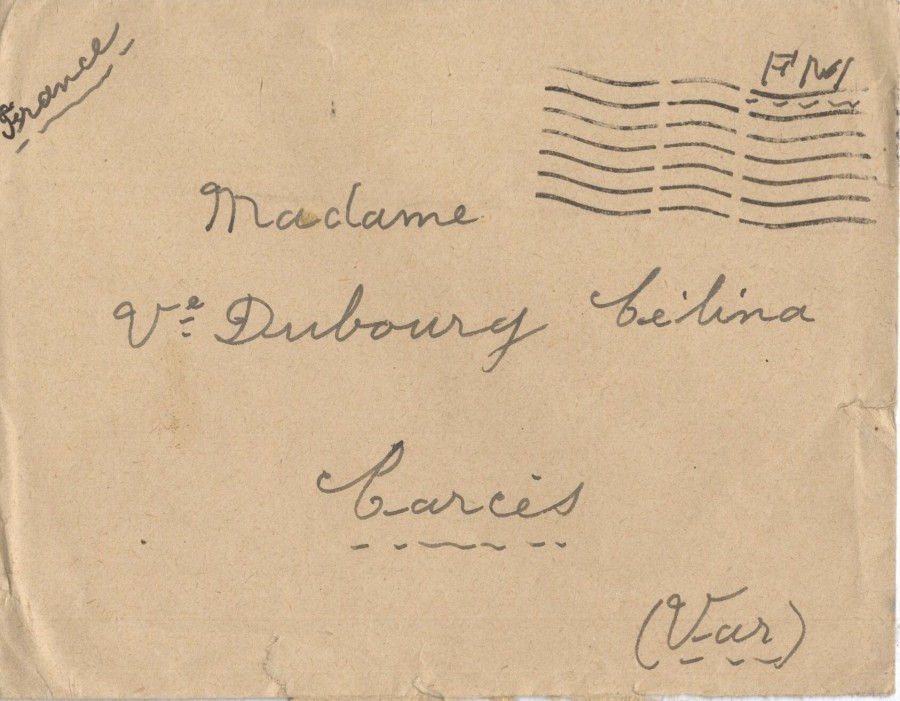 France
FM
Madame
Vᵉ Dubourg Célina
Carcès
(Var)